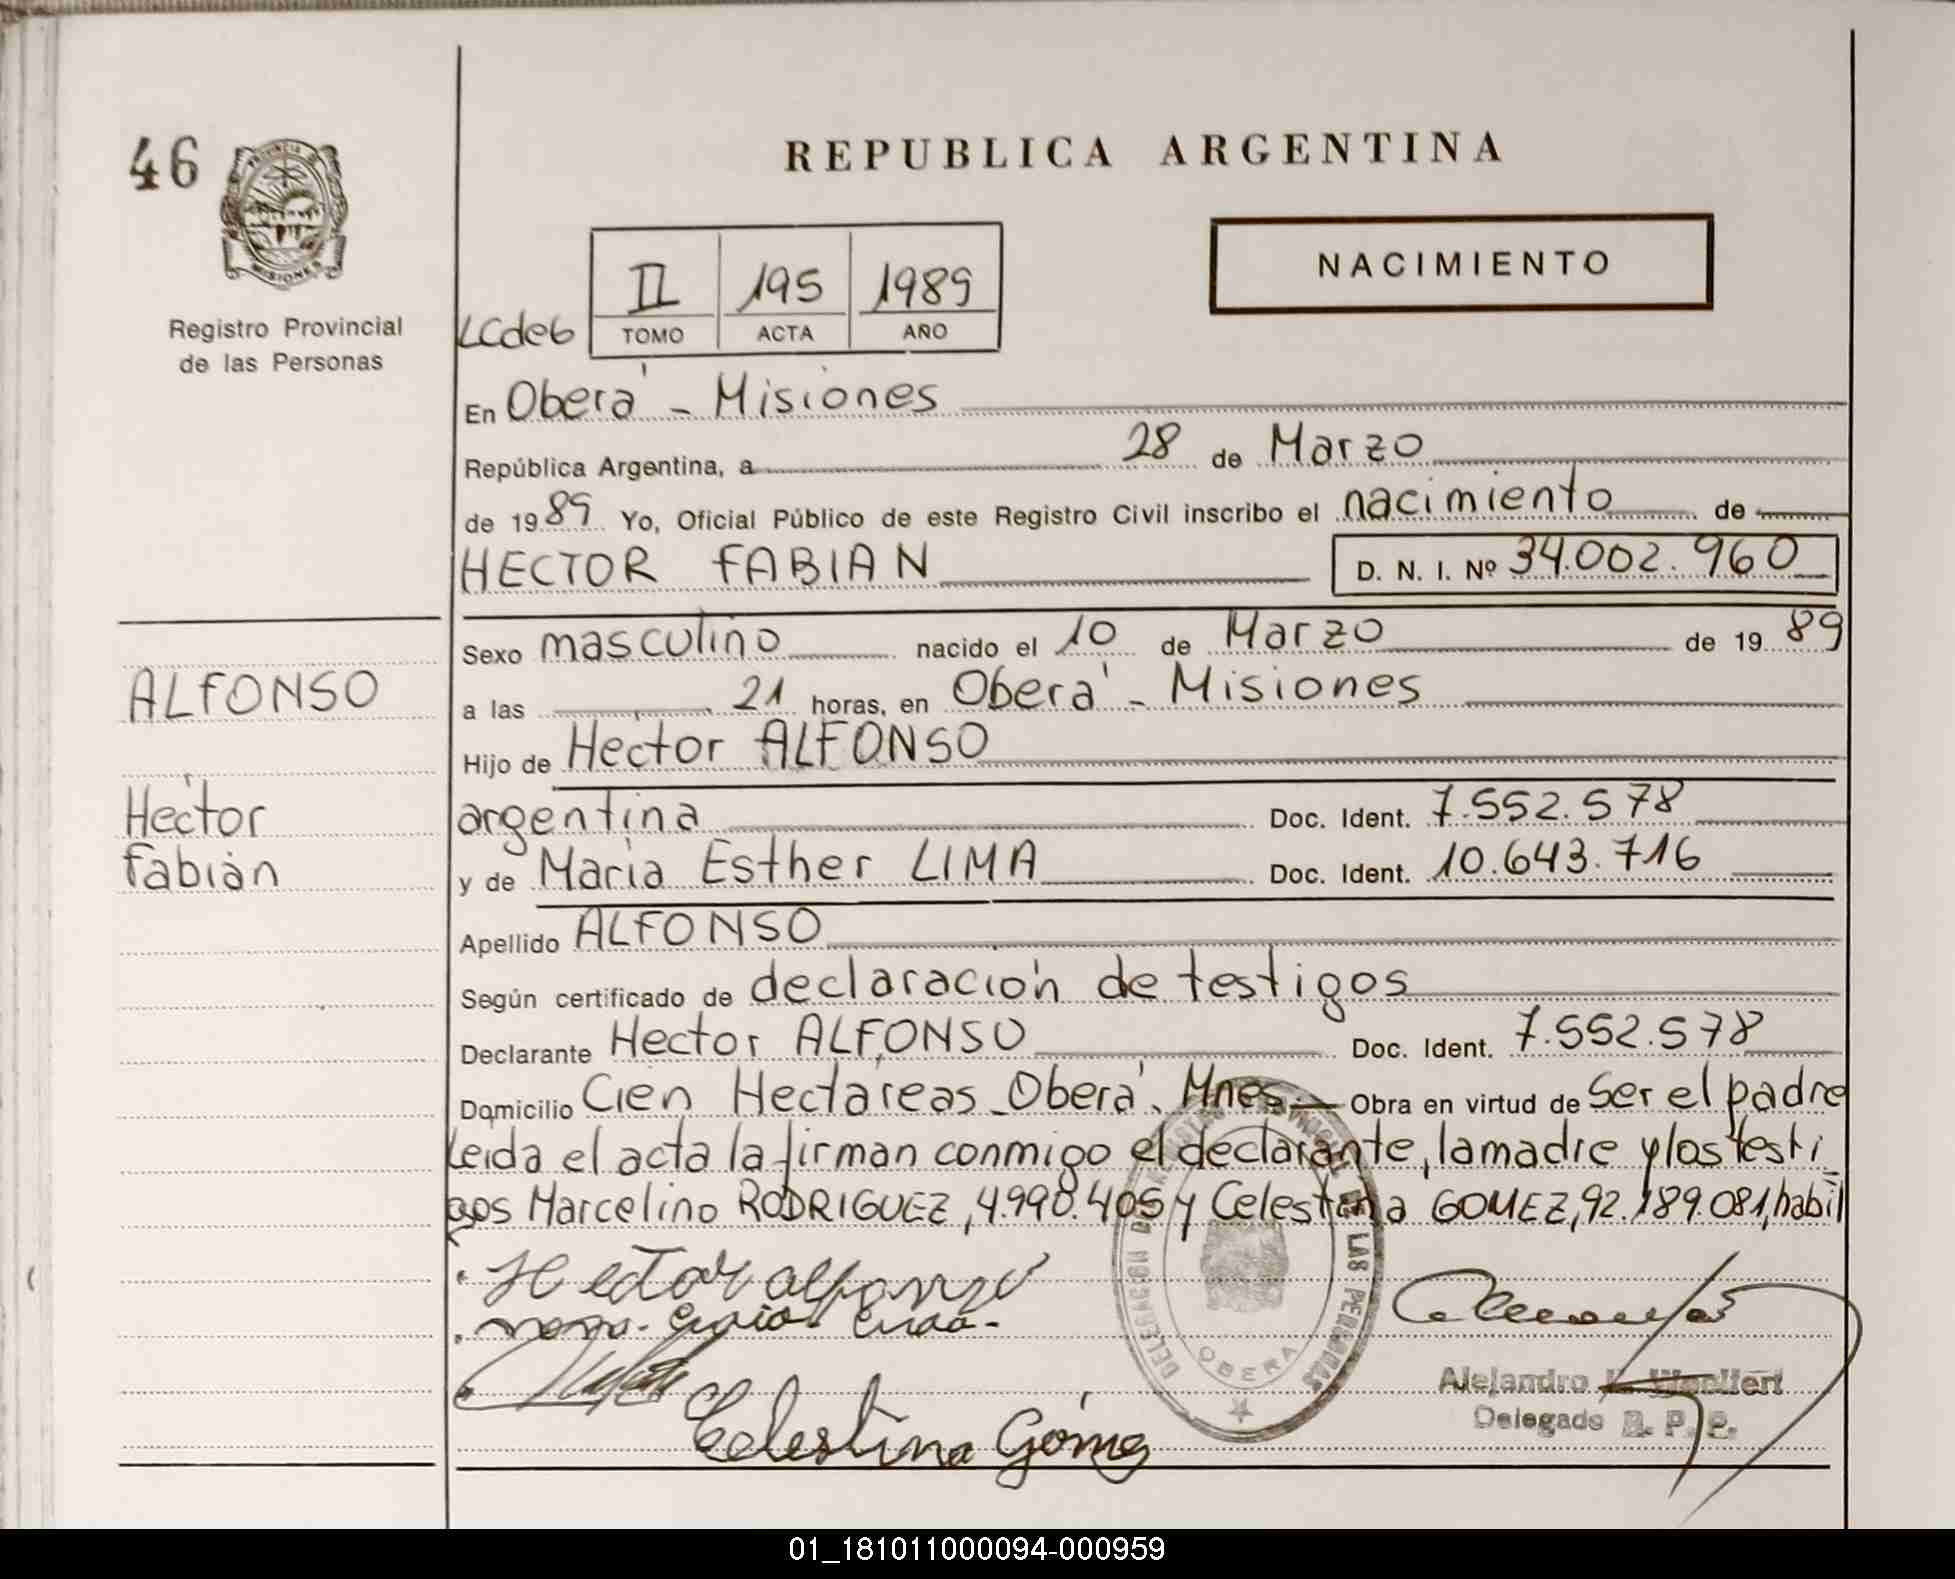 46
PROVINCIA DE
MISIONES
Registro Provincial
de las Personas
REPUBLICA ARGENTINA
NACIMIENTO
LCde6
II 195 1989
TOMO ACTA AÑO
En Oberá - Misiones
República Argentina, a 28 de Marzo
de 1989 Yo, Oficial Público de este Registro Civil inscribo el nacimiento de
HECTOR FABIAN D. N. I. Nº 34.002.960
Sexo masculino nacido el 10 de Marzo de 1989
a las 21 horas, en Oberá - Misiones
Hijo de Hector ALFONSO
argentina Doc. Ident. 7.552.578
y de Maria Esther LIMA Doc. Ident. 10.643.716
Apellido ALFONSO
Según certificado de declaración de testigos
Declarante Hector ALFONSO Doc. Ident. 7.552.578
Domicilio Cien Hectáreas - Oberá, Mnes. Obra en virtud de Ser el padre
Leida el acta la firman conmigo el declarante, la madre y los testi
gos Marcelino RODRIGUEZ, 4.990.405 y Celestina GOMEZ, 92.189.081, habil
ALFONSO
Héctor
fabián
Hector alfonzo
Celestina Gómez
DELEGACION DEL REGISTRO PROVINCIAL DE LAS PERSONAS
OBERA
Alejandro
Delegado R. P. P.
01_181011000094-000959